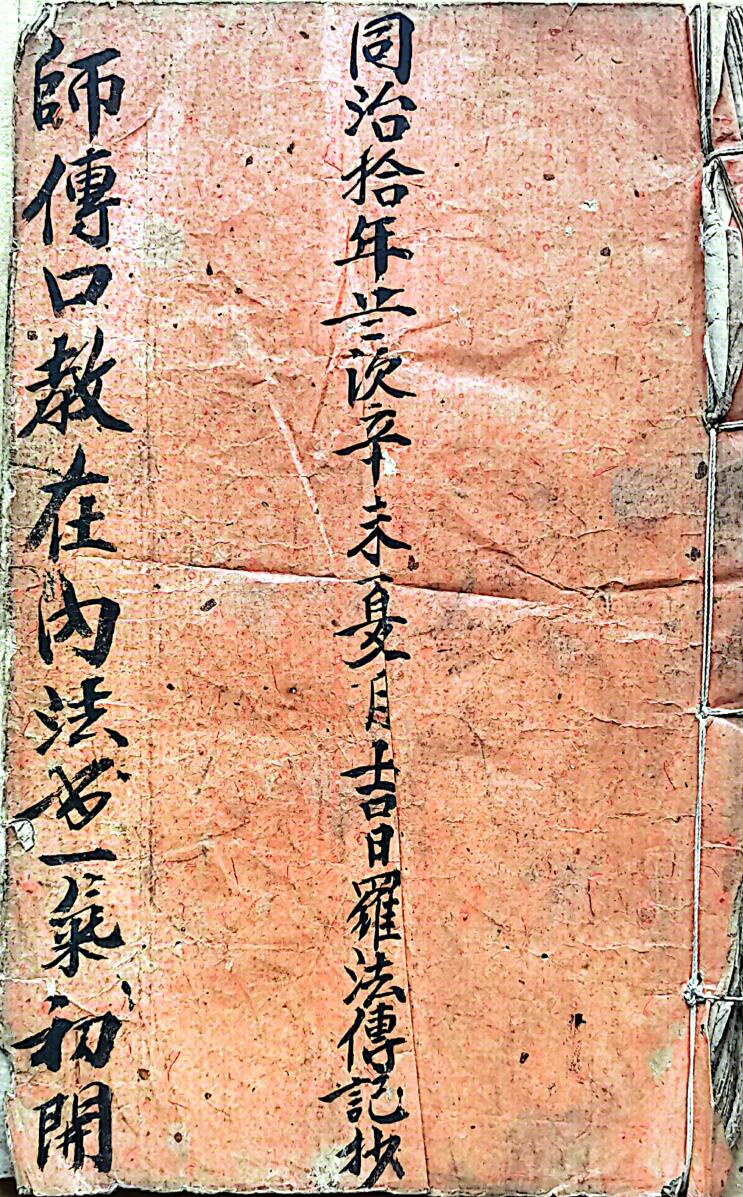 同治拾年歲次辛未夏月吉日羅法傳記抄
師傳口教在內法书一氣初開